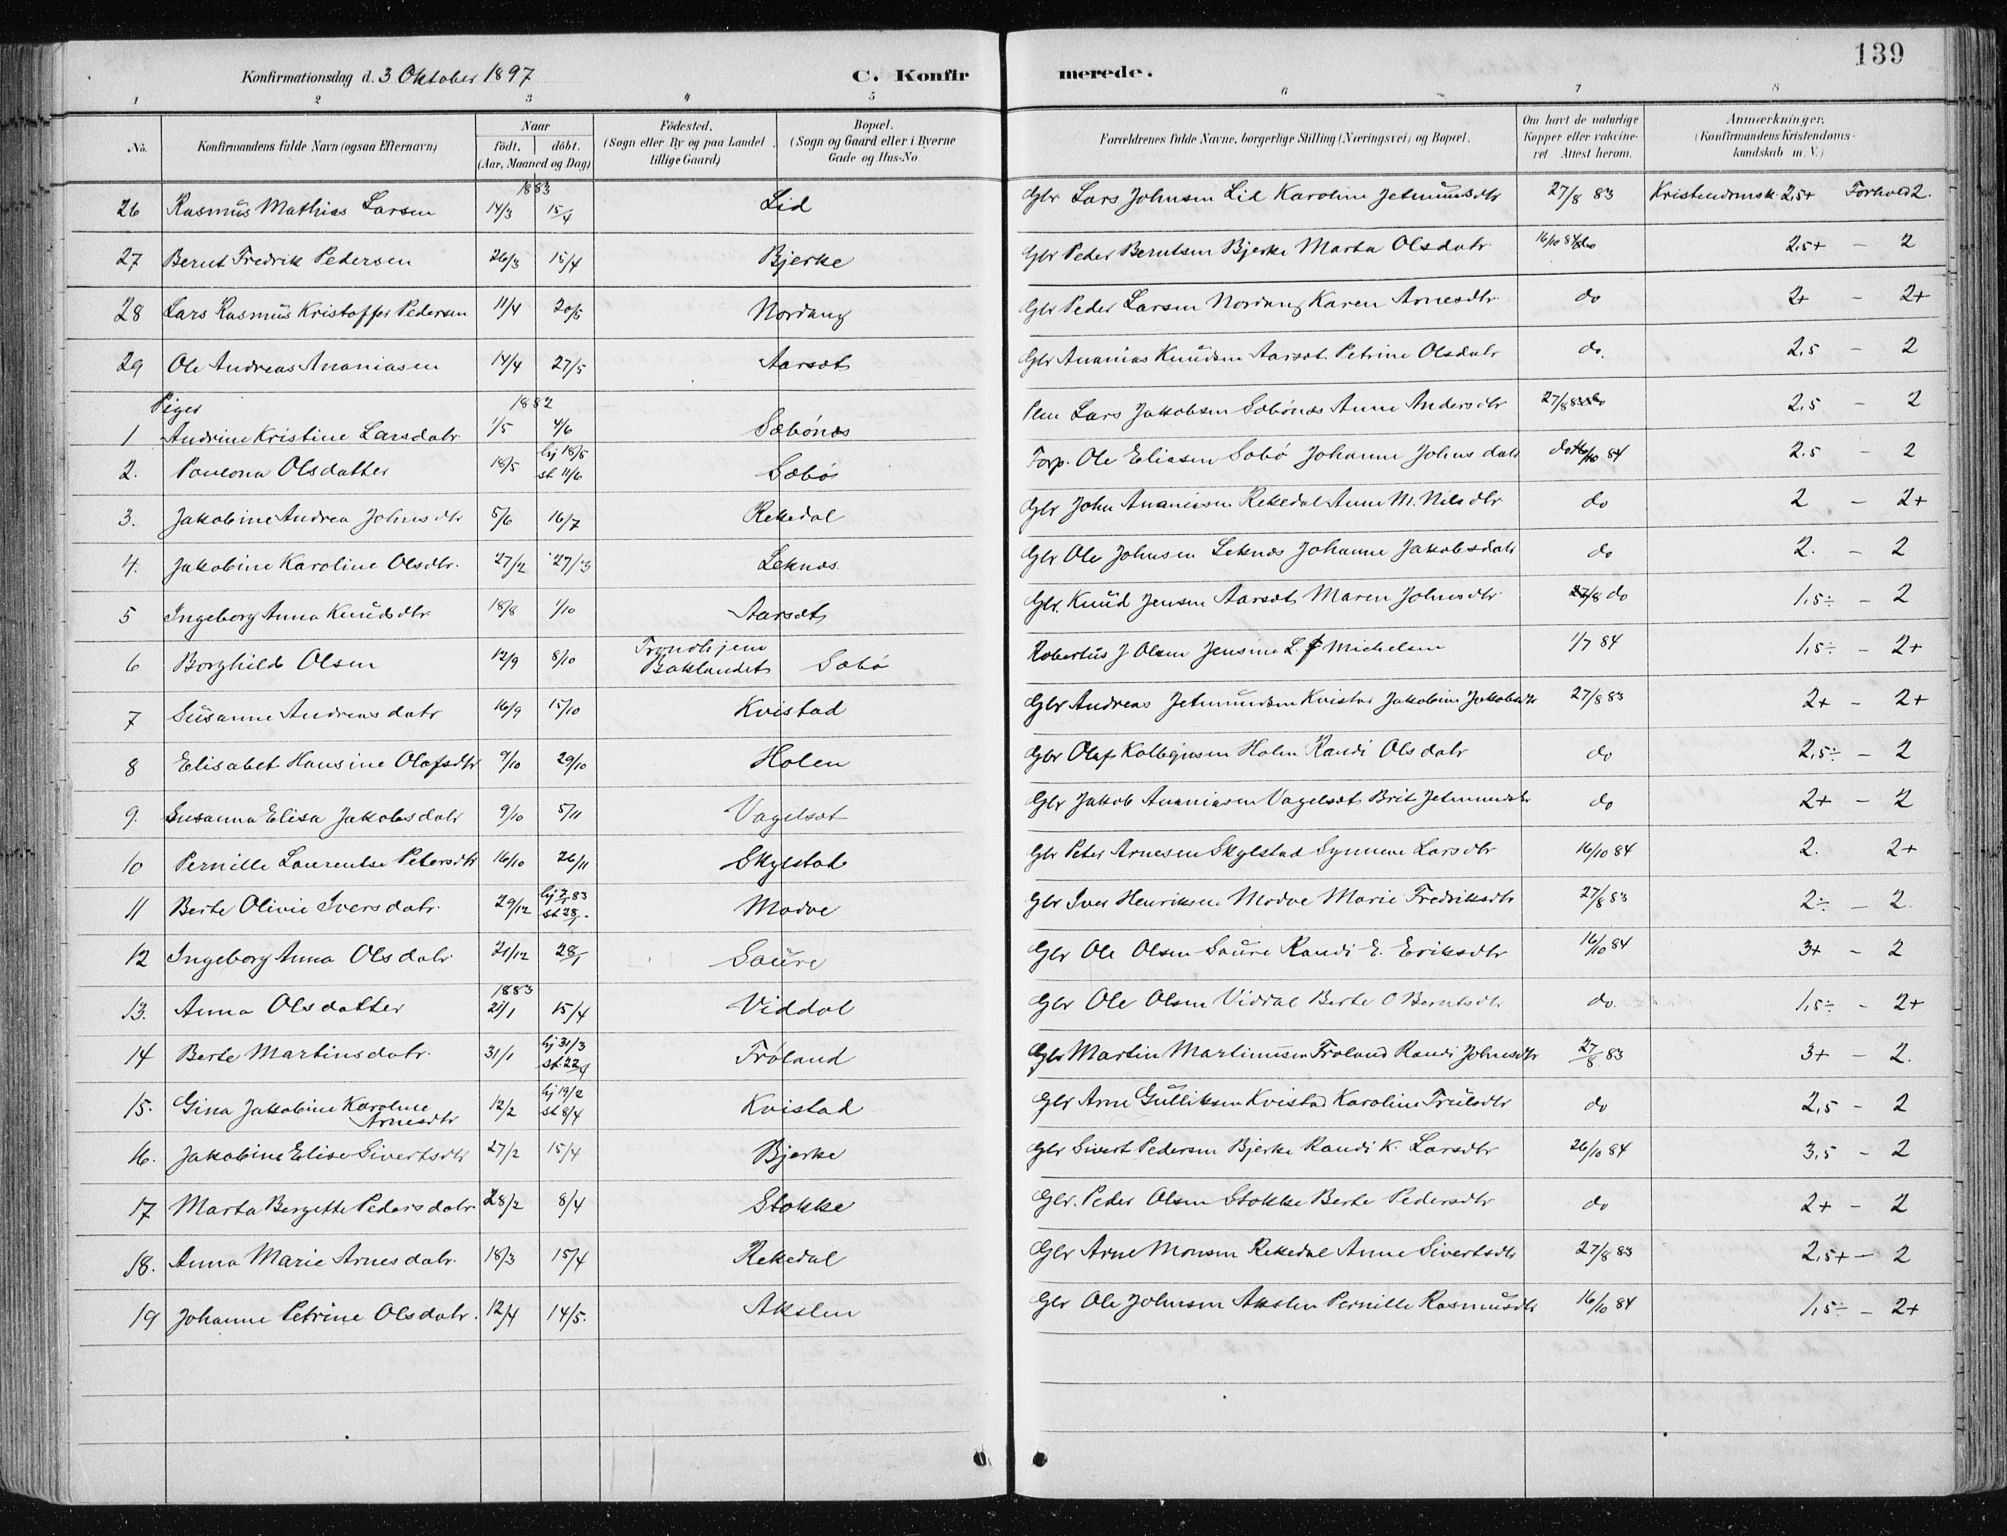 139
Konfirmationsdag d. 3 Oktober 1897 C. Konfir merede.
1 2 3 4 5 6 7 8
No. Konfirmandens fulde Navn (ogsaa Efternavn) Naar født. døbt. (Aar, Maaned og Dag) Fødested. (Sogn eller By og paa Landet tillige Gaard) Bopæl. (Sogn og Gaard eller i Byerne Gade og Hus-No Forældrenes fulde Navne, borgerlige Stilling (Næringsvei) og Bopæl. Om havt de naturlige Kopper eller vakcineret Attest herom. Anmærkninger. (Konfirmandens Kristendomskundskab m. V.)
1883
26 Rasmus Mathias Larsen 14/3 15/4 Lid Gbr Lars Johnsen Lid Karoline Jetmundsdtr 27/8 83 Kristendomsk. 2,5+ Forhold 2.
27 Bernt Fredrik Pedersen 26/3 15/4 Bjerke Gbr Peder Berntsen Bjerke Marta Olsdatr 16/10 84 2,5+ - 2
28 Lars Rasmus Kristoffer Pedersen 11/4 20/5 Nordang Gbr Peder Larsen Nordang Karen Arnesdtr do 2+ - 2+
29 Ole Andreas Ananiasen 14/4 27/5 Aarsæt Gbr Ananias Knudsen Aarsæt Petrine Olsdatr do. 2,5 - 2
Piger 1882
1 Andrine Kristine Larsdatr 1/5 4/6 Sæbønæs Lars Jakobsen Sæbønæs Anne Andersdtr 27/8 83 2,5 - 2
2. Paulona Olsdatter 18/5 hj 18/5 st 11/6 Sæbø Forp. Ole Eliasen Sæbø Johanne Johnsdatr 16/10 84 2,5 - 2
3. Jakobine Andrea Johnsdtr 5/6 16/7 Rekedal Gbr John Ananiasen Rekedal Anne M. Nilsdtr do 2 - 2+
4. Jakobine Karoline Olsdtr. 27/2 27/3 Leknæs. Gbr Ole Johnsen Leknæs Johanne Jakobsdatr do 2. - 2
5 Ingeborg Anna Knudsdtr 18/8 1/10 Aarsæt Gbr. Knud Jensen Aarsæt Maren Johnsdtr do 1,5÷ - 2
6 Borghild Olsen 12/9 8/10 Trondhjem Baklandet Sæbø Robertus J Olsen Jensine L. Michelsen 1/7 84 1,5÷ - 2+
7 Susanne Andreasdatr 16/9 15/10 Kvistad Gbr Andreas Jetmundsen Kvistad Jakobine Jakobsdtr 27/8 83 2+ - 2+
8 Elisabet Hansine Olafsdtr 9/10 29/10 Holen Gbr Olaf Kolbejnsen Holen Randi Olsdatr do 2,5÷ - 2
9. Susanna Elisa Jakobsdatr 9/10 5/11 Vagelsæt Gbr Jakob Ananiasen Vagelsæt Brit Jetmundsdtr do 2+ - 2
10 Pernille Laurentse Petersdtr 16/10 26/11 Skylstad Gbr Peter Arnesen Skylstad Synneve Larsdtr 16/10 84 2. 2+
11 Berte Olivie Iversdatr. 29/12 83 Modve Gbr Iver Henriksen Modve Marie Fredriksdtr 27/8 83 2÷ - 2.
12 Ingeborg Anna Olsdatr 21/12 28/1 Saure Gbr Ole Olsen Saure Randi E. Eriksdtr 16/10 84 3+ - 2
1883
13. Anna Olsdatter 21/1 15/4 Viddal Gbr Ole Olsen Viddal Berte O Berntsdtr do. 1,5÷ - 2+
14 Berte Martinsdatr. 31/1 hj 31/3 st. 22/4 Frøland Gbr Martin Martinusen Frøland Randi Johnsdtr 27/8 83 3+ - 2.
15. Gina Jakobine Karoline Arnesdtr 12/2 hj 19/2 st 8/4 Kvistad Gbr Arne Gulliksen Kvistad Karoline Trulsdtr do 2,5 - 2
16. Jakobine Elise Sivertsdtr 27/2 15/4 Bjerke Gbr Sivert Pedersen Bjerke Randi K. Larsdtr 26/10 84 3,5 - 2
17 Marta Bergette Pedersdatr. 28/2 8/4 Stokke Gbr. Peder Olsen Stokke Berte Pedersdtr do 2+ - 2
18. Anna Marie Arnesdatr. 18/3 15/4 Rekedal Gbr Arne Monsen Rekedal Anne Sivertsdtr 27/8 83 2,5+ - 2
19 Johanne Petrine Olsdatr. 12/4 14/5. Akslen Gbr Ole Johnsen Akslen Pernille Rasmusdtr 16/10 84 1,5÷ - 2+